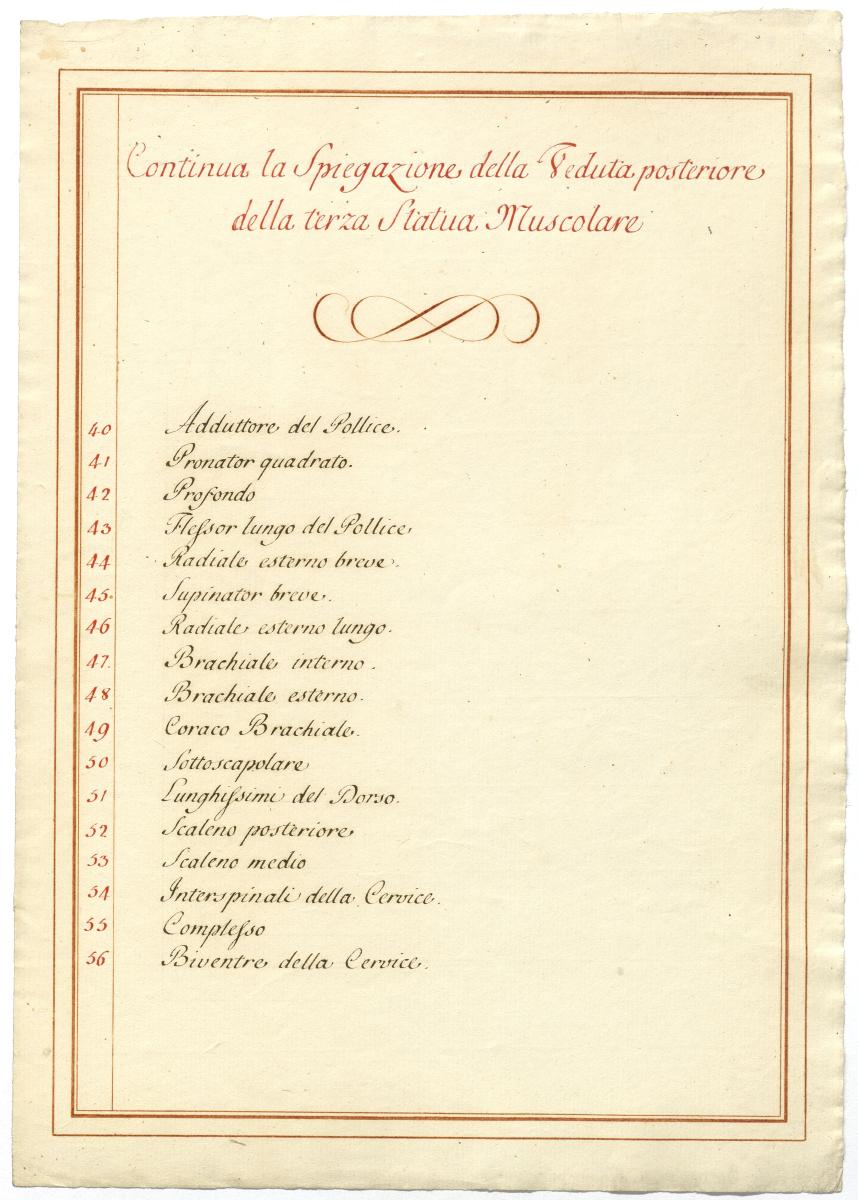 Continua la Spiegazione della Veduta posteriore
della terza Statua Muscolare
40 Adduttore del Pollice.
41 Pronator quadrato.
42 Profondo
43 Flessor lungo del Pollice
44 Radiale esterno breve.
45. Supinator breve.
46 Radiale esterno lungo.
47. Brachiale interno.
48 Brachiale esterno.
49 Coraco Brachiale.
50 Sottoscapolare
51 Lunghissimi del Dorso.
52 Scaleno posteriore
53 Scaleno medio
54 Interspinali della Cervice.
55 Complesso
56 Biventre della Cervice.